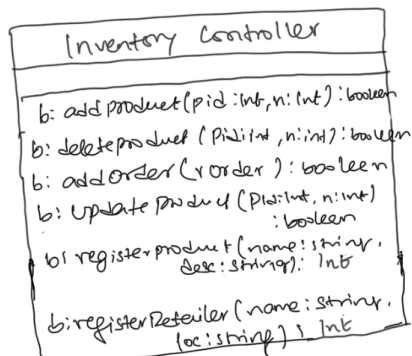 Inventory Controller
b: addproduct(pid:int, n:int): boolean
b: deleteproduct (Pid:int, n:int): boolean
b: addOrder(rorder): boolean
b: Update Product (Pid:int, n:int)
: boolean
b: registerproduct(name:string,
desc:string): Int
b:registerRetailer(name:string,
loc:string): Int